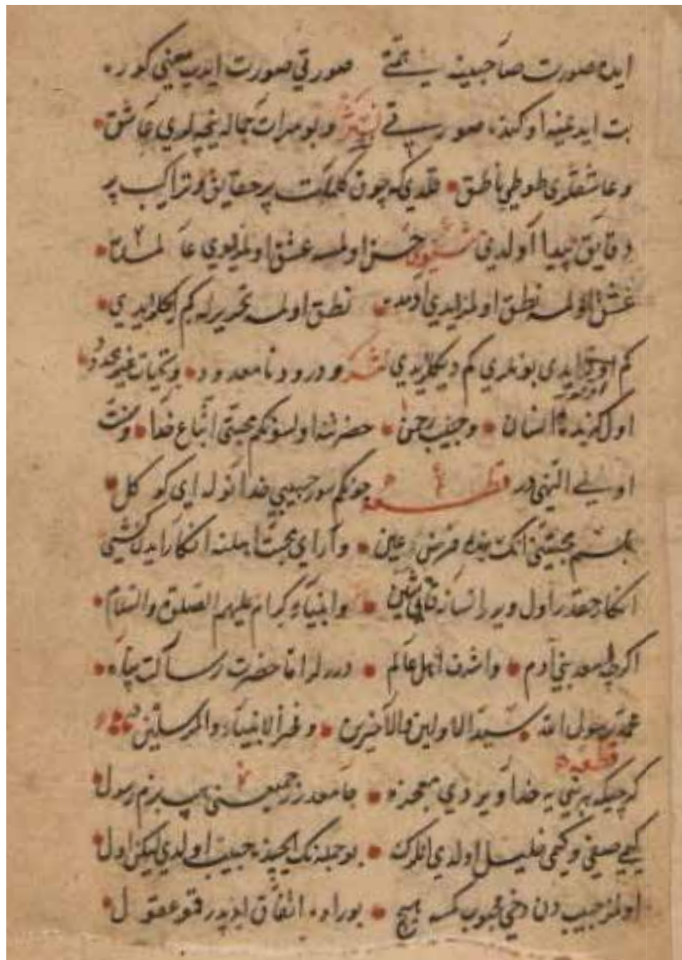 ايده صورت صاحبينه همتى صورتى صورت ايدب معنى كوره
بت ايدغنه اوكنده صورتى نثر وبو مرات جماله نيجه لرى عاشق
وعاشقلرى طوطئ ناطق قلدى كه چون كلمات پر حقايق وتراكيب پر
دقايق پيدا اولدى حسن اولمسه عشق اولمزيدى عالمده
عشق اولمسه نطق اولمزيدى ادمده نطق اولمسه تحريرله كم اكلريدى
كم اوقوريدى بونلرى كم ديكلريدى نثر ودرود نامعدود وتحيات غير محدود
اول كزيدهٔ انسان وحبيب رحمن حضرتنه اولسونكم محبتى اتباع خدا وسنت
الهى در قطعه چونكم سور حبيبى خدا اى كوكل
محبتى انك بنده فرض عين وار اى محبت اهلنه انكار ايدن كشى
انكار حق در اول وانبياء كرام عليهم الصلوة والسلام
اكرچه معد بنى آدم واشرف اهل عالم درلر اما حضرت رسالت پناه
محمد رسول الله سيد الاولين والآخرين وفخر الانبياء والمرسلين در
قطعه
كرچه كه هر نبى يه خدا ويردى معجزه جامعدر جميعنى بزم رسول
كيمى صفى وكيمى خليل اولدى انلرك بو جمله نك ايچنده حبيب اولدى ليكن اول
اولمز حبيب دن دخى محبوب كمسه هيچ بوراده اتفاق ايدپدر قو عقول